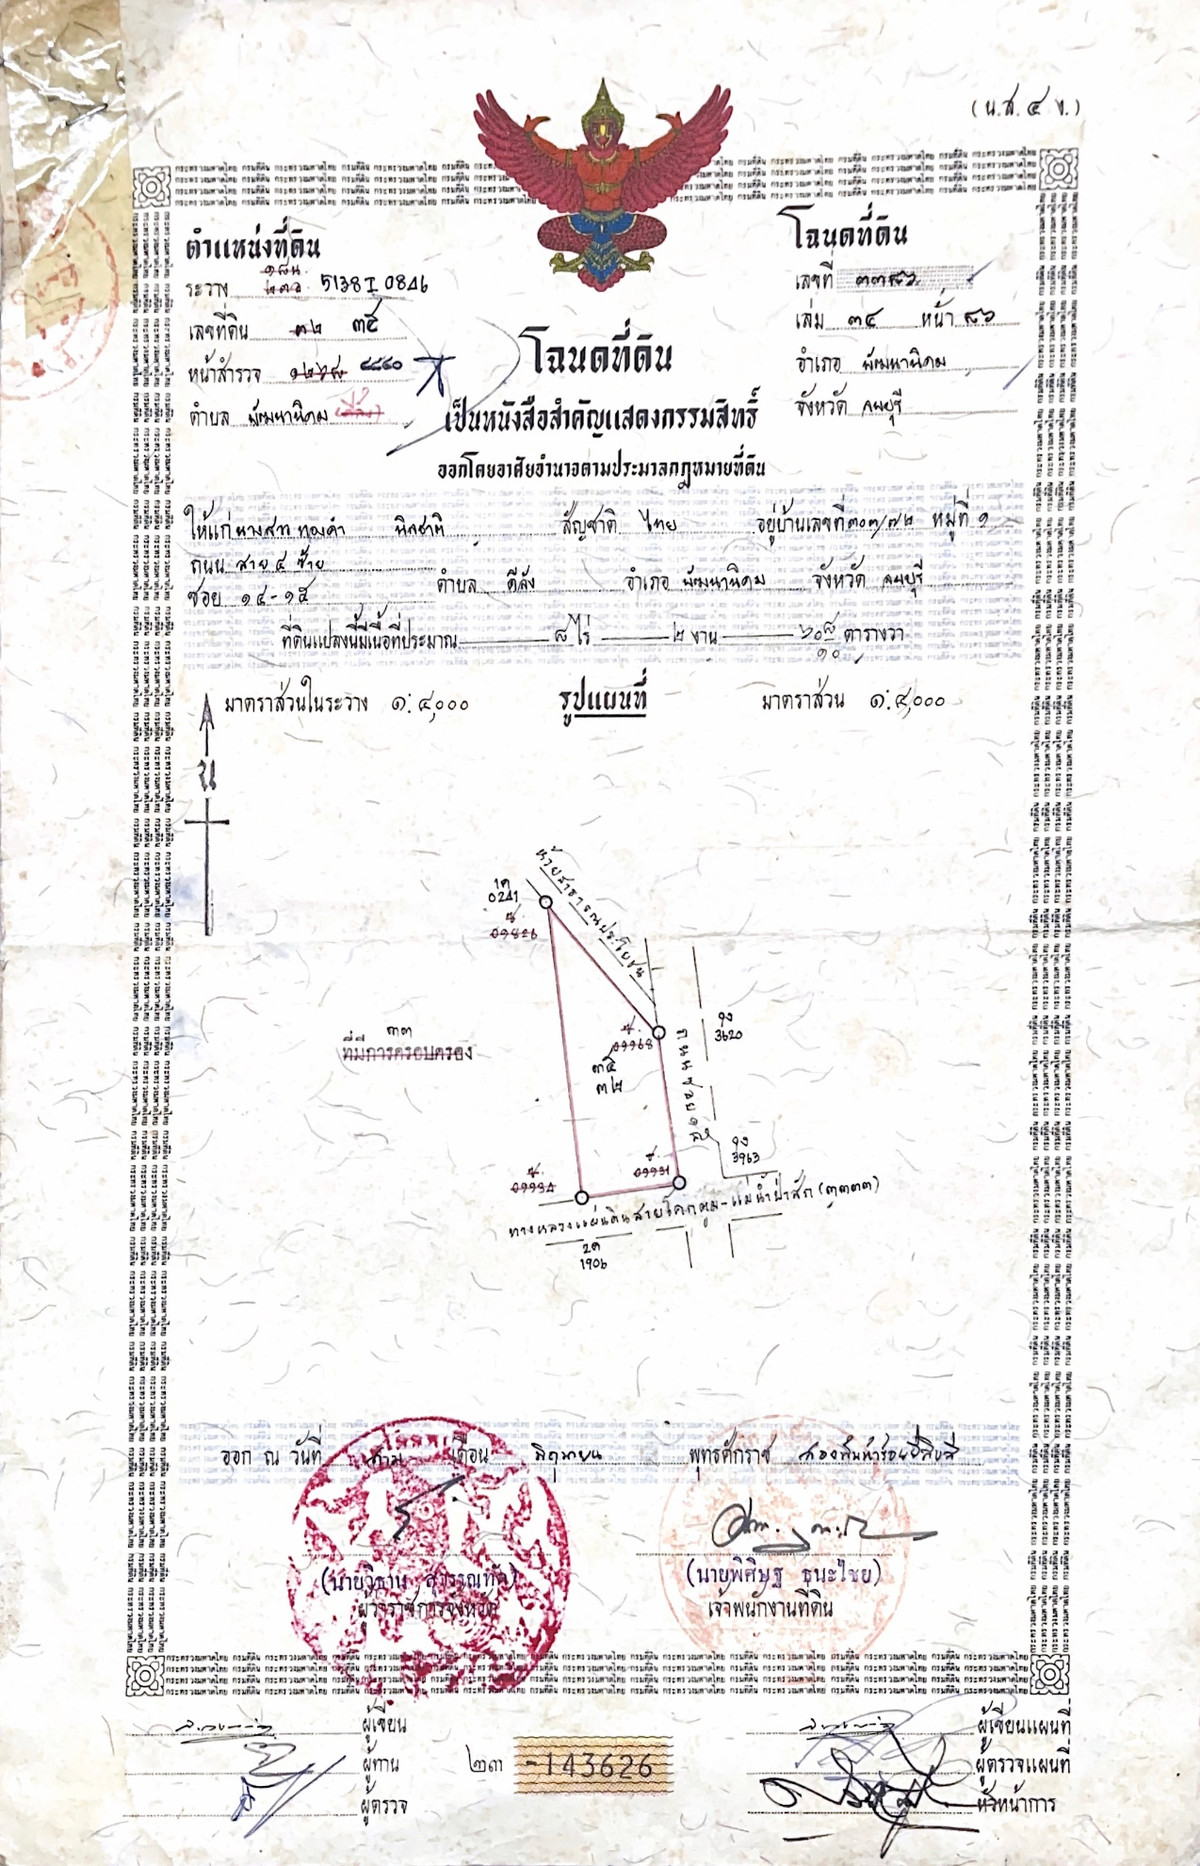 (น.ส.๔ ง.)
ตำแหน่งที่ดิน
ระวาง 5138 I 0846
เลขที่ดิน ๓๒ ๓๕
หน้าสำรวจ ๔๔๔๐
ตำบล พัฒนานิคม
โฉนดที่ดิน
เลขที่
เล่ม ๓๔ หน้า ๘๖
อำเภอ พัฒนานิคม
จังหวัด ลพบุรี
โฉนดที่ดิน
เป็นหนังสือสำคัญแสดงกรรมสิทธิ์
ออกโดยอาศัยอำนาจตามประมวลกฎหมายที่ดิน
ให้แก่ สัญชาติ ไทย อยู่บ้านเลขที่ ๓๐๓/๗๒ หมู่ที่ ๑
ถนน สาย ๔ ซ้าย
ซอย ๑๔-๑๕ ตำบล ดีลัง อำเภอ พัฒนานิคม จังหวัด ลพบุรี
ที่ดินแปลงนี้มีเนื้อที่ประมาณ ๘ ไร่ ๒ งาน ๖๐ ๘/๑๐ ตารางวา
มาตราส่วนในระวาง ๑:๔,๐๐๐ รูปแผนที่ มาตราส่วน ๑:๔,๐๐๐
น
ห้วยสาธารณประโยชน์
0241
09826
๓๓
ที่มีการครอบครอง
09968
3620
๓๕
๓๒
ถนนซอย
3963
09934
09931
ทางหลวงแผ่นดินสายโคกตูม-แม่น้ำป่าสัก (๓๓๓๓)
1906
ออก ณ วันที่ ห้า เดือน มิถุนายน พุทธศักราช สองพันห้าร้อยยี่สิบสี่
(นายวิธาน สุวรรณทัต) (นายพิศิษฐ ธนะไชย)
ผู้ว่าราชการจังหวัด เจ้าพนักงานที่ดิน
ผู้เขียน ผู้เขียนแผนที่
ผู้ทาน ๒๓ -143626 ผู้ตรวจแผนที่
ผู้ตรวจ หัวหน้าการ